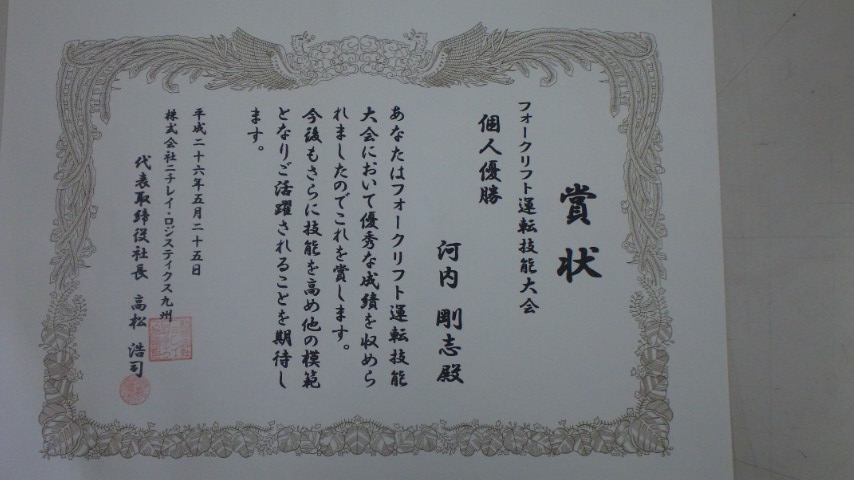 賞状
フォークリフト運転技能大会
個人優勝
河内 剛志殿
あなたはフォークリフト運転技能
大会において優秀な成績を収めら
れましたのでこれを賞します。
今後もさらに技能を高め他の模範
となりご活躍されることを期待し
ます。
平成二十六年五月二十五日
株式会社ニチレイ・ロジスティクス九州
代表取締役社長 高松 浩司